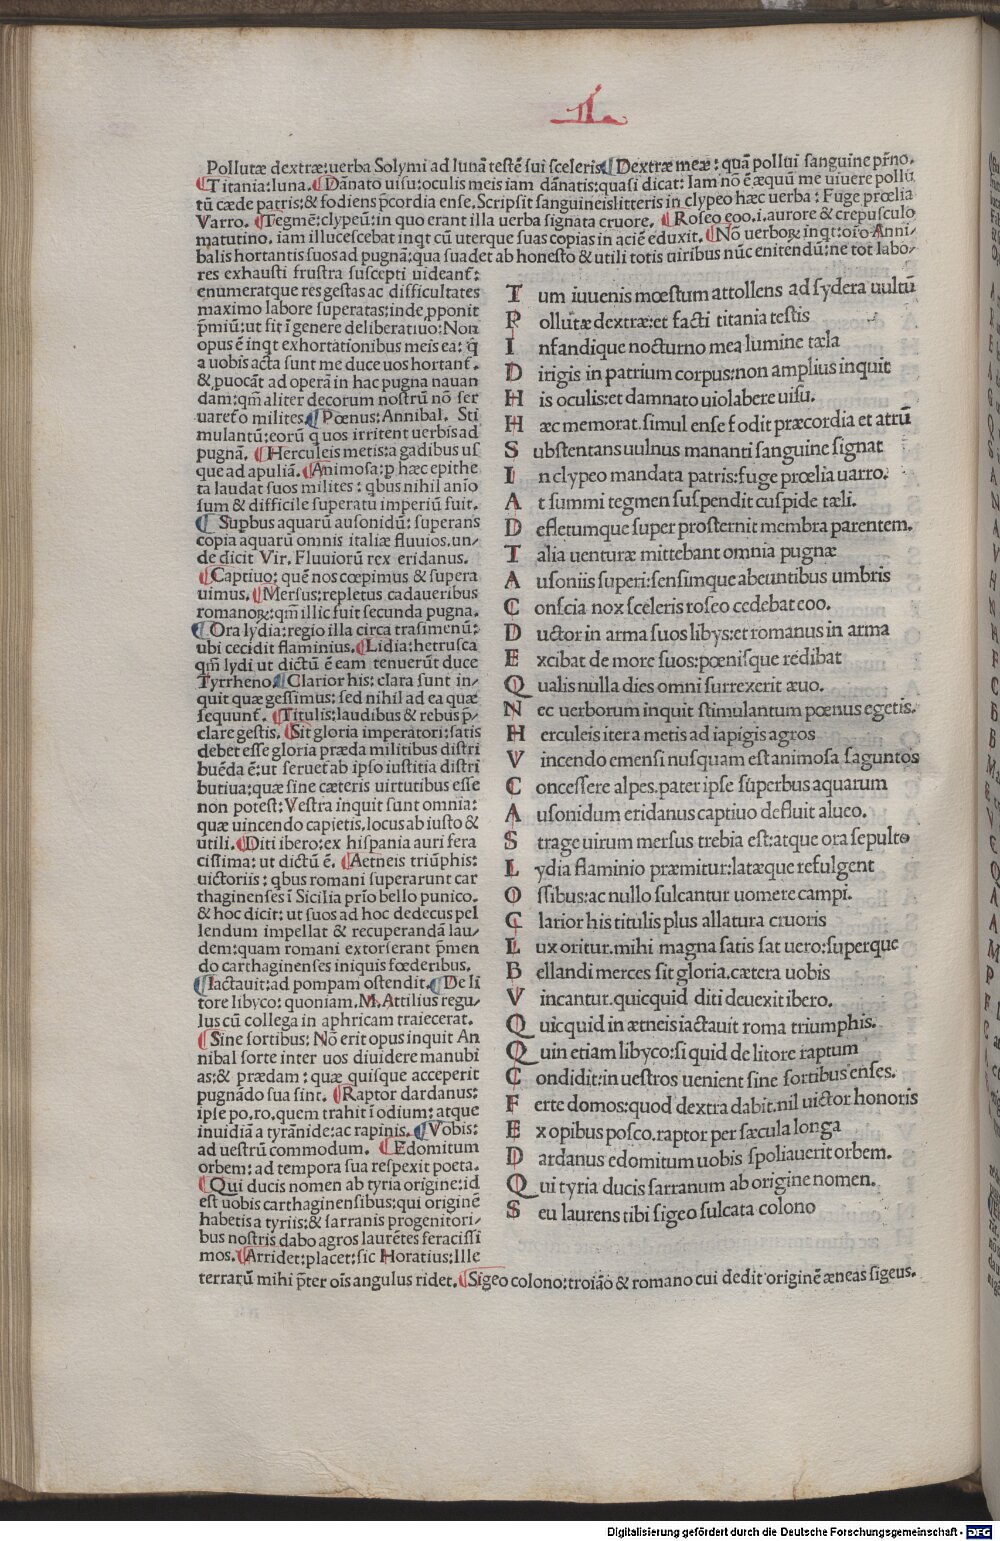 Pollutæ dextræ: uerba Solymi ad lunā testē sui sceleris. Dextræ meæ: quā pollui sanguine pr̄no.
Titania: luna. Dānato uisu: oculis meis iam dānatis: quasi dicat: Iam nō ē æquū me uiuere pollu
tū cæde patris: & fodiens p̄cordia ense. Scripsit sanguineis litteris in clypeo hæc uerba: Fuge prœlia
Varro. Tegmē: clypeū: in quo erant illa uerba signata cruore. Roseo eoo .i. aurore & crepusculo
matutino. iam illucescebat inqt cū uterque suas copias in aciē eduxit. Nō uerboꝝ inqt: oro Anni-
balis hortantis suos ad pugnā: qua suadet ab honesto & utili totis uiribus nūc enitendū: ne tot labo-
res exhausti frustra suscepti uideant̄:
enumeratque res gestas ac difficultates
maximo labore superatas: inde ꝓponit
p̄miū: ut fit ī genere deliberatiuo: Non
opus ē inqt exhortationibus meis ea: q̄
a uobis acta sunt me duce uos hortant̄.
& ꝓuocāt ad operā in hac pugna nauan
dam: qm̄ aliter decorum nostrū nō ser
uaret̄ o milites. Pœnus: Annibal. Sti
mulantū: eorū q uos irritent uerbis ad
pugnā. Herculeis metis: a gadibus us
que ad apuliā. Animosa: ꝑ hæc epithe
ta laudat suos milites: qbus nihil anio
sum & difficile superatu imperiū fuit.
Supbus aquarū ausonidū: superans
copia aquarū omnis italiæ fluuios. un-
de dicit Vir. Fluuiorū rex eridanus.
Captiuo: quē nos cœpimus & supera
uimus. Mersus: repletus cadaueribus
romanoꝝ: qm̄ illic fuit secunda pugna.
Ora lydia: regio illa circa trasimenū:
ubi cecidit flaminius. Lidia: hetrusca
qm̄ lydi ut dictū ē eam tenuerūt duce
Tyrrheno. Clarior his: clara sunt in-
quit quæ gessimus: sed nihil ad ea quæ
sequunt̄. Titulis: laudibus & rebus p̄-
clare gestis. Sit gloria imperatori: satis
debet esse gloria præda militibus distri
buēda ē: ut seruet̄ ab ipso iustitia distri
butiua: quæ sine cæteris uirtutibus esse
non potest: Vestra inquit sunt omnia:
quæ uincendo capietis. locus ab iusto &
utili. Diti ibero: ex hispania auri fera
cissima: ut dictū ē. Aetneis triūphis:
uictoriis: qbus romani superarunt car
thaginenses ī Sicilia prīo bello punico.
& hoc dicit: ut suos ad hoc dedecus pel
lendum impellat & recuperandā lau-
dem: quam romani extorserant p̄men
do carthaginenses iniquis fœderibus.
Iactauit: ad pompam ostendit. De li
tore libyco: quoniam. M. Attilius regu-
lus cū collega in aphricam traiecerat.
Sine sortibus: Nō erit opus inquit An
nibal sorte inter uos diuidere manubi
as: & prædam: quæ quisque acceperit
pugnādo sua sint. Raptor dardanus:
ipse po. ro. quem trahit ī odium: atque
inuidiā a tyrānide: ac rapinis. Vobis:
ad uestrū commodum. Edomitum
orbem: ad tempora sua respexit poeta.
Qui ducis nomen ab tyria origine: id
est uobis carthaginensibus: qui originē
habetis a tyriis: & sarranis progenitori-
bus nostris dabo agros laurētes feracissi
mos. Arridet: placet: sic Horatius: Ille
terrarū mihi p̄ter oīs angulus ridet. Sigeo colono: troiāo & romano cui dedit originē æneas sigeus.
T um iuuenis mœstum attollens ad sydera uultū
P ollutæ dextræ: et facti titania testis
I nfandique nocturno mea lumine tæla
D irigis in patrium corpus: non amplius inquit
H is oculis: et damnato uiolabere uisu.
H æc memorat. simul ense fodit præcordia et atrū
S ubstentans uulnus mananti sanguine signat
I n clypeo mandata patris: fuge prœlia uarro.
A t summi tegmen suspendit cuspide tæli.
D efletumque super prosternit membra parentem.
T alia uenturæ mittebant omnia pugnæ
A usoniis superi: sensimque abeuntibus umbris
C onscia nox sceleris roseo cedebat eoo.
D uctor in arma suos libys: et romanus in arma
E xcibat de more suos: pœnisque redibat
Q ualis nulla dies omni surrexerit æuo.
N ec uerborum inquit stimulantum pœnus egetis.
H erculeis iter a metis ad iapigis agros
V incendo emensi nusquam est animosa saguntos
C oncessere alpes. pater ipse superbus aquarum
A usonidum eridanus captiuo defluit alueo.
S trage uirum mersus trebia est: atque ora sepulto
L ydia flaminio præmitur: latæque refulgent
O ssibus: ac nullo sulcantur uomere campi.
C larior his titulis plus allatura cruoris
L ux oritur. mihi magna satis sat uero: superque
B ellandi merces sit gloria. cætera uobis
V incantur. quicquid diti deuexit ibero.
Q uicquid in ætneis iactauit roma triumphis.
Q uin etiam libyco: si quid de litore raptum
C ondidit: in uestros uenient sine sortibus enses.
F erte domos: quod dextra dabit. nil uictor honoris
E x opibus posco. raptor per sæcula longa
D ardanus edomitum uobis spoliauerit orbem.
Q ui tyria ducis sarranum ab origine nomen.
S eu laurens tibi sigeo sulcata colono
Digitalisierung gefördert durch die Deutsche Forschungsgemeinschaft - DFG